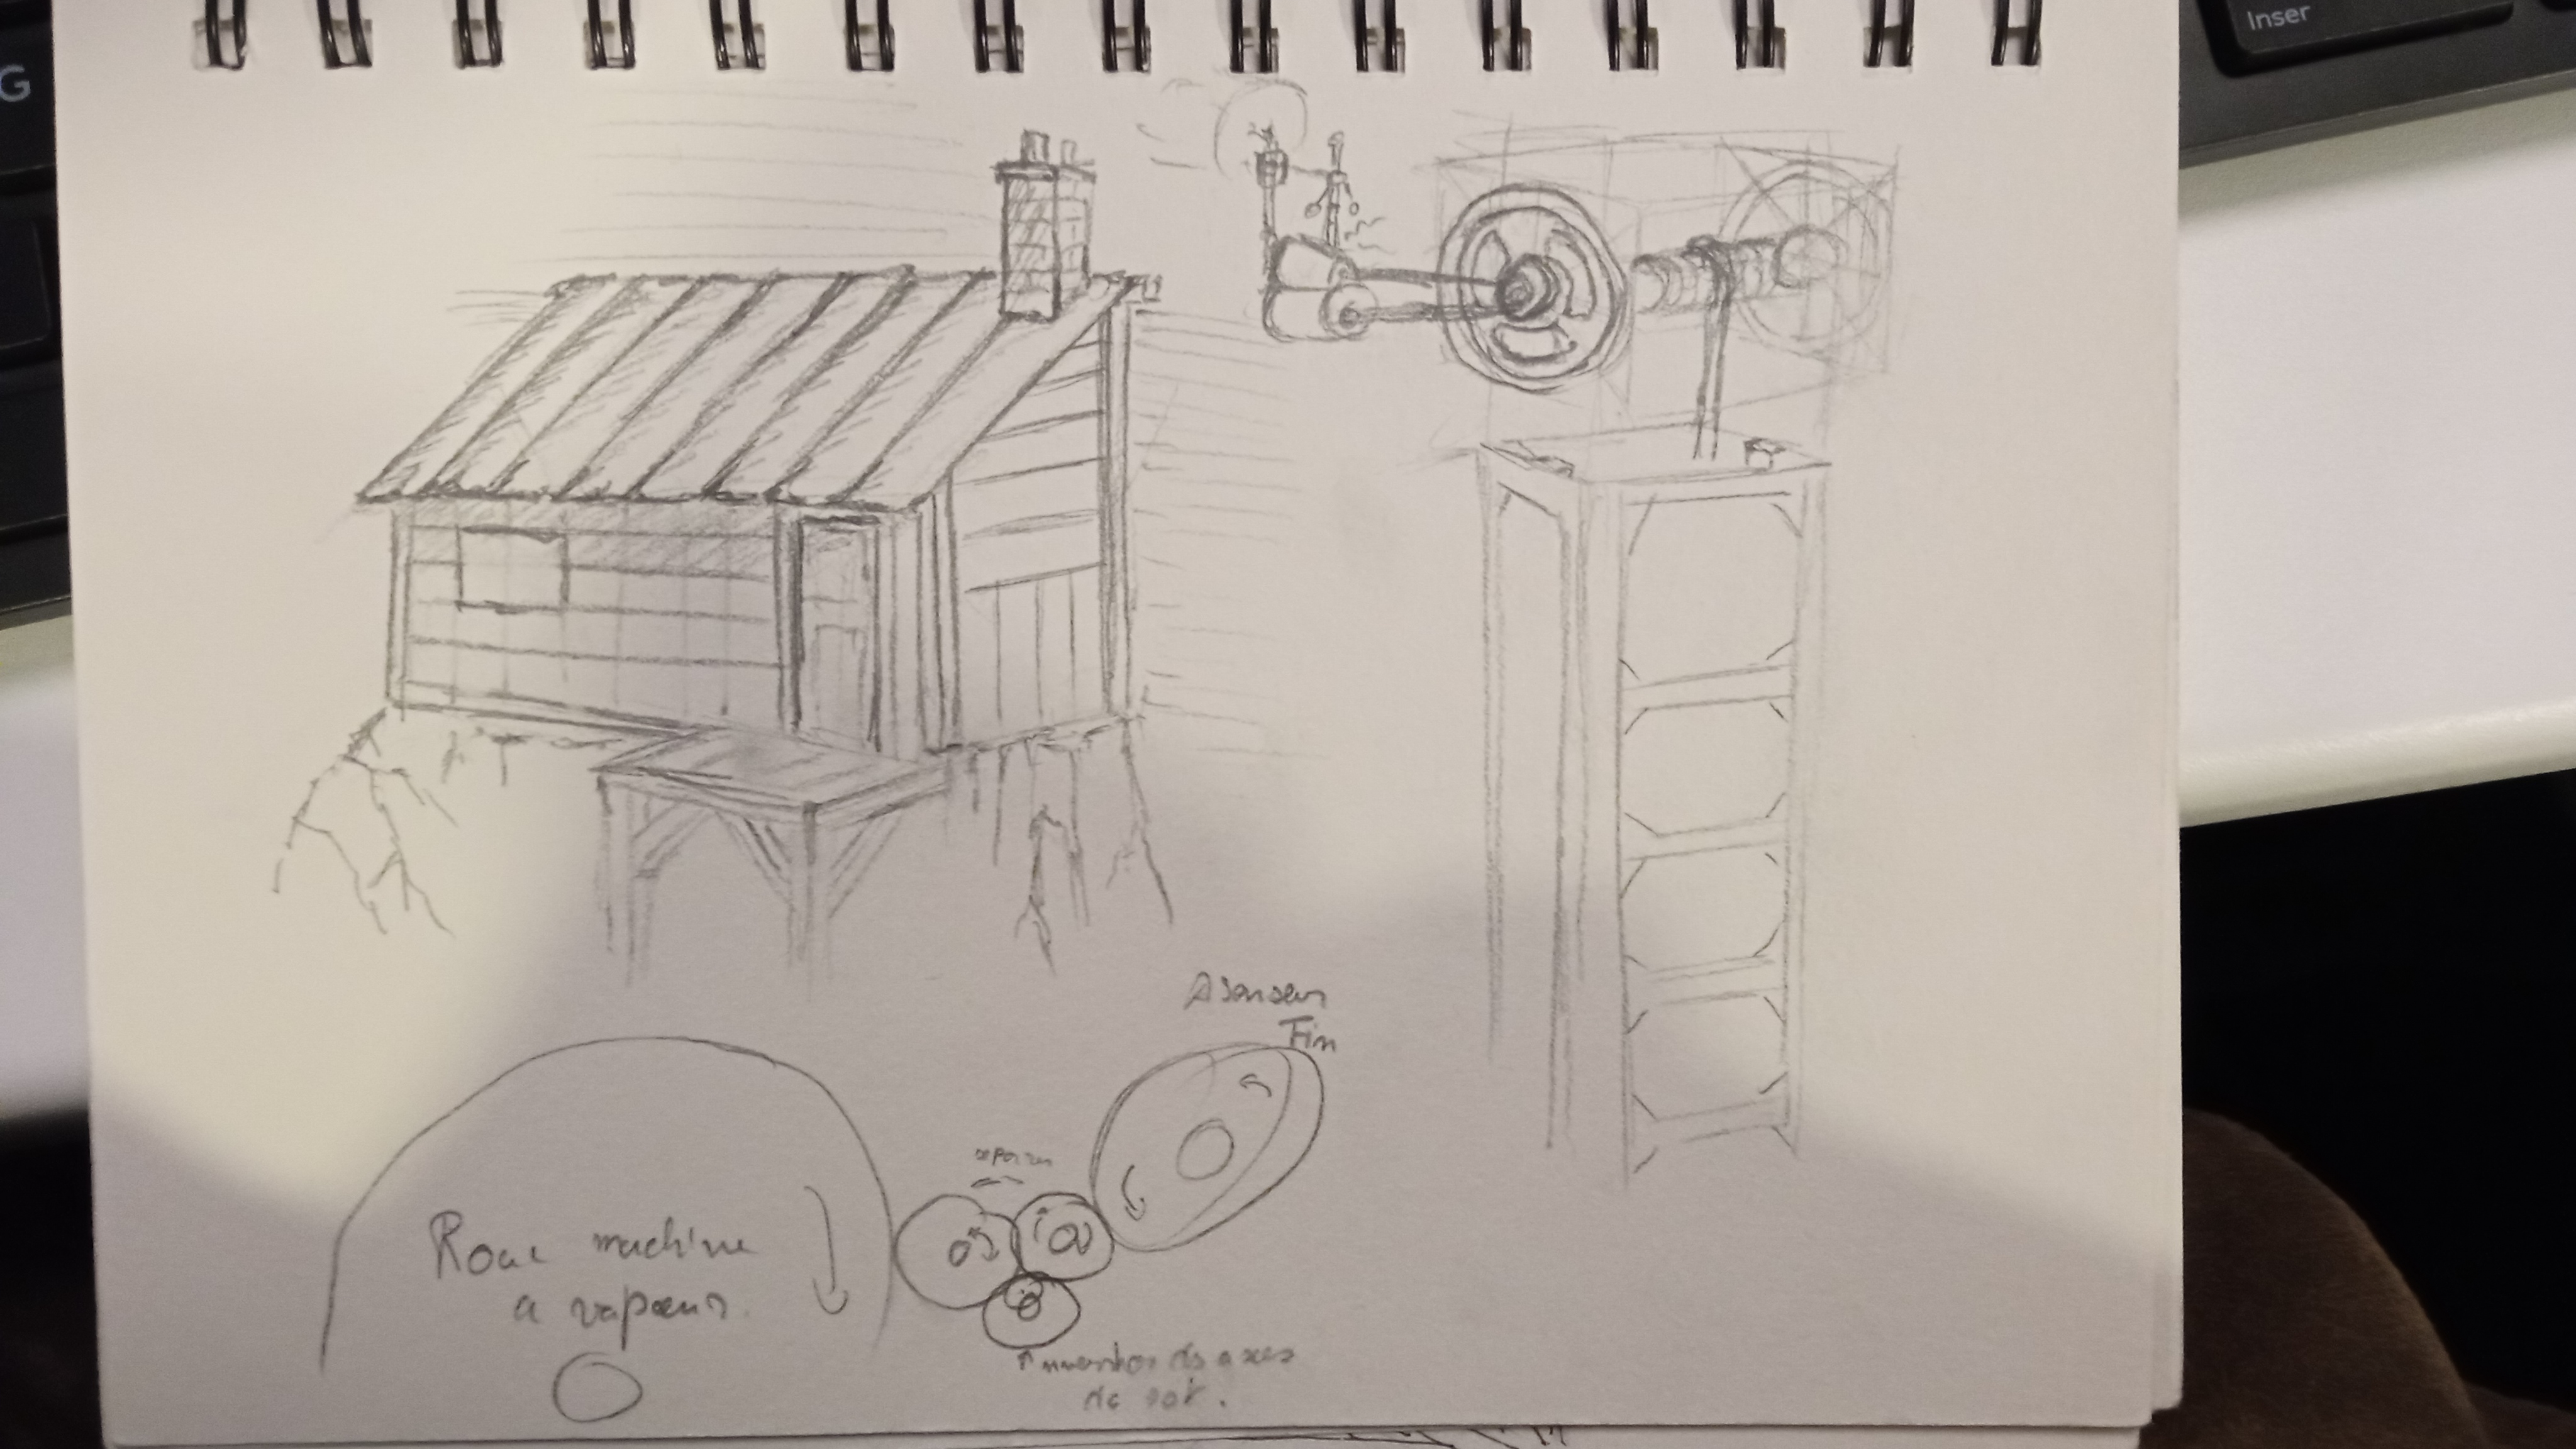 Inser
G
Asenseur
Fin
Roue machine
a vapeur.
inversion des axes
de rot.